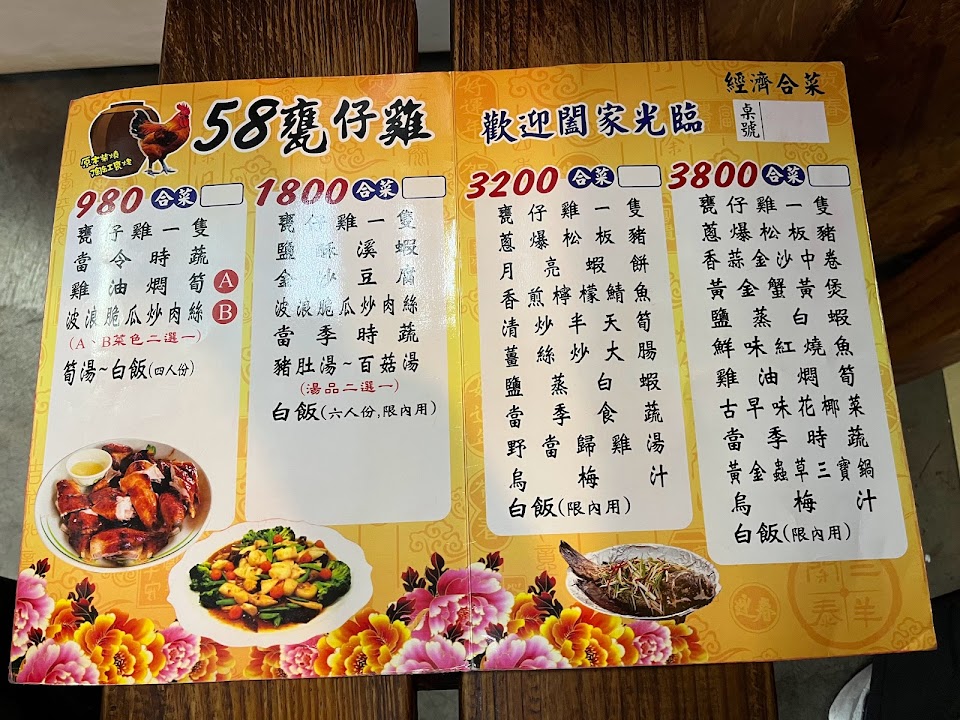 經濟合菜
58甕仔雞
歡迎闔家光臨
桌號
980 合菜
甕仔雞一隻
當令時蔬
雞油燜筍 A
波浪脆瓜炒肉絲 B
(A、B菜色二選一)
筍湯~白飯(四人份)
1800 合菜
甕仔雞一隻
鹽酥溪蝦
金沙豆腐
波浪脆瓜炒肉絲
當季時蔬
豬肚湯~百菇湯
(湯品二選一)
白飯(六人份,限內用)
3200 合菜
甕仔雞一隻
蔥爆松板豬
月亮蝦餅
香煎檸檬鯖魚
清炒半天筍
薑絲炒大腸
鹽蒸白蝦
當季食蔬
野當歸雞湯
烏梅汁
白飯(限內用)
3800 合菜
甕仔雞一隻
蔥爆松板豬
香蒜金沙中卷
黃金蟹黃煲
鹽蒸白蝦
鮮味紅燒魚
雞油燜筍
古早味花椰菜
當季時蔬
黃金蟲草三寶鍋
烏梅汁
白飯(限內用)